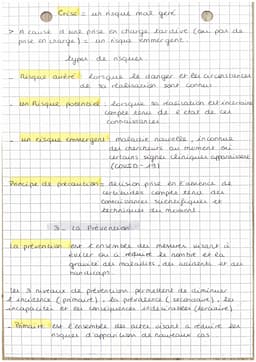 Crise = un risque mal géré
> A cause d'une prise en charge tardive (ou pas de
prise en charge) = un risque émergent.
types de risques
- Risque avéré : lorsque le danger et les circonstances
de sa réalisation sont connus
- un Risque potentiel : lorsque sa réalisation est incertaine
compte tenu de l'état de ces
connaissances
- un risque émergent : maladie nouvelle, inconnue
des chercheurs au moment où
certains signes cliniques apparaissent
(COVID-19)
Principe de précaution = décision prise en l'absence de
certitudes compte tenu des
connaissances scientifiques et
techniques du moment.
3 - La Prévention
La prévention est l'ensemble des mesures visant à
éviter ou à réduire le nombre et la
gravité des maladies, des accidents et des
handicaps
Les 3 niveaux de prévention permettent de diminuer
l'incidence (primaire), la prévalence (secondaire), les
incapacités et les conséquences indésirables (tertiaire).
- Primaire est l'ensemble des actes visant à réduire les
risques d'apparition de nouveaux cas